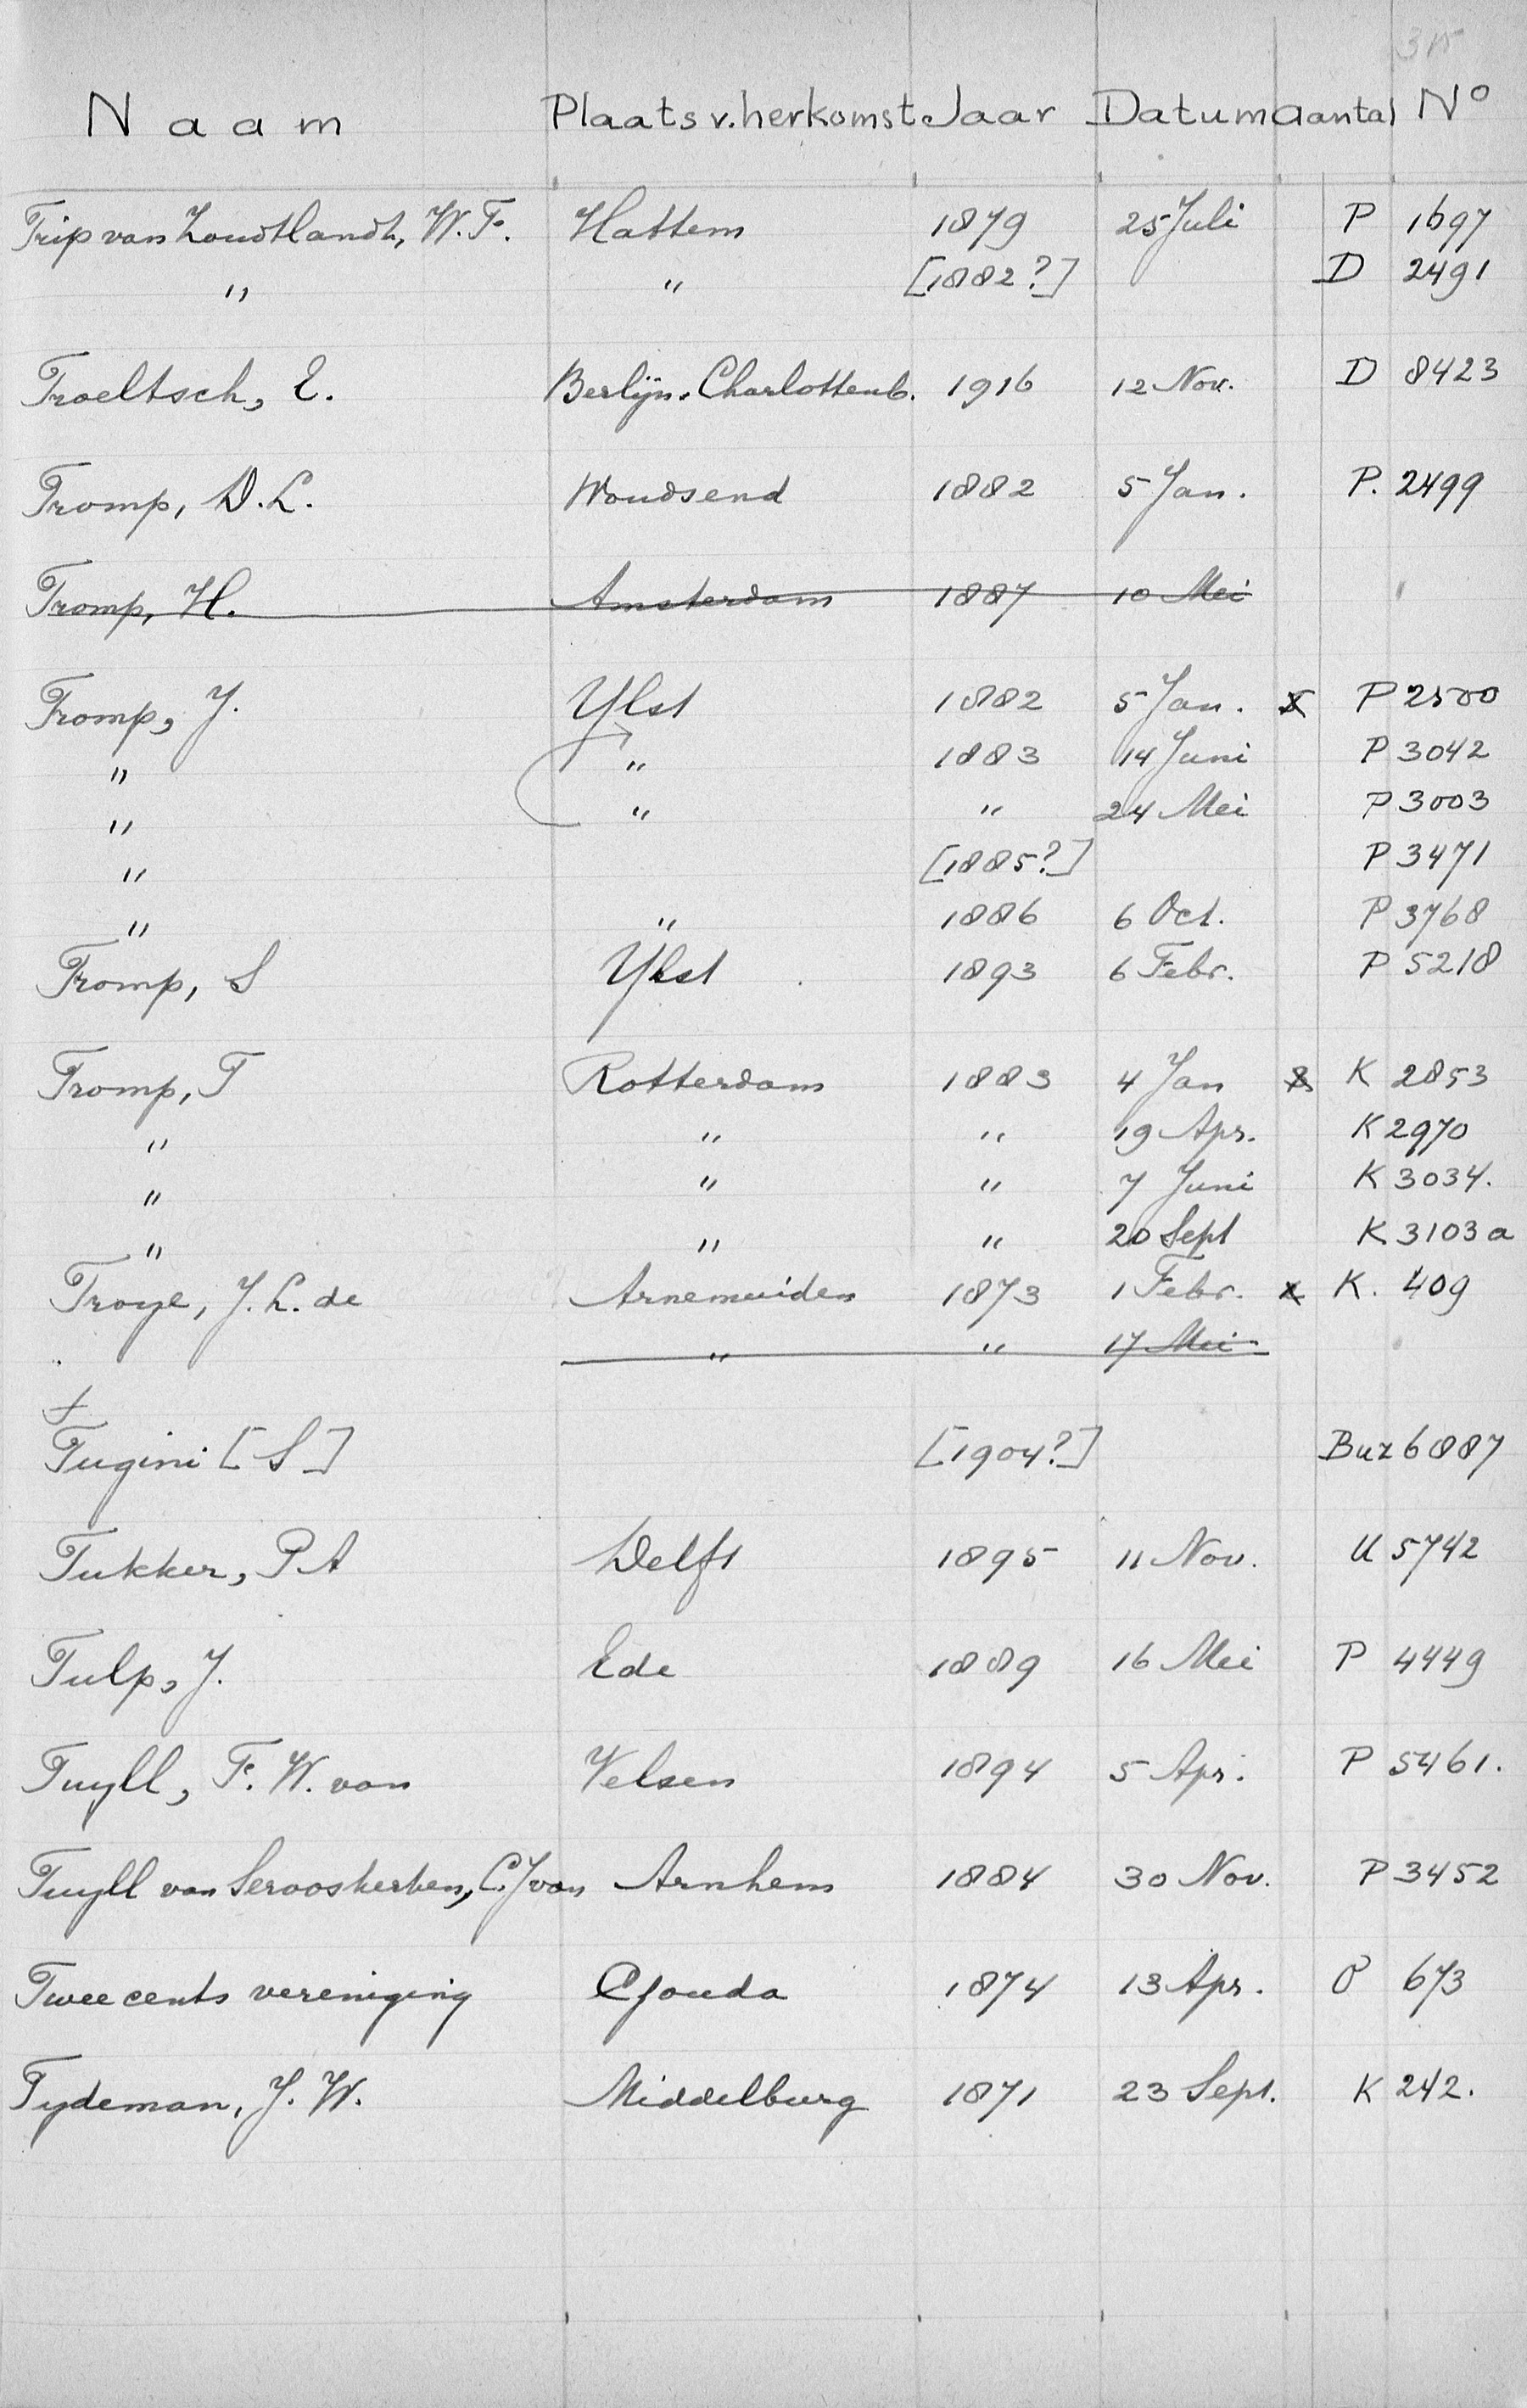 Naam Plaats v. herkomst Jaar Datum aantal No
Trip van Zoudtlandt, W. F. Hattem 1879 25 Juli P 1697
" " [1882?] D 2491
Troeltsch, E. Berlijn-Charlottenb. 1916 12 Nov. D 8423
Tromp, D. L. Woudsend 1882 5 Jan. P. 2499
Tromp, H. Amsterdam 1887 10 Mei
Tromp, J. Ylst 1882 5 Jan. P 2500
" " 1883 14 Juni P 3042
" " " 24 Mei P 3003
" [1885?] P 3471
" " 1886 6 Oct. P 3768
Tromp, S Ylst 1893 6 Febr. P 5218
Tromp, T Rotterdam 1883 4 Jan K 2853
" " " 19 Apr. K 2970
" " " 7 Juni K 3034.
" " " 20 Sept K 3103a
Troye, J. L. de Arnemuiden 1873 1 Febr. x K. 409
" " 17 Mei
+
Tugini [S] [1904?] Buz 6887
Tukker, P A Delft 1895 11 Nov. U 5742
Tulp, J. Ede 1889 16 Mei P 4449
Tuyll, F. W. van Velsen 1894 5 Apr. P 5461.
Tuyll van Serooskerken, C. J van Arnhem 1884 30 Nov. P 3452
Twee cents vereniging Gouda 1874 13 Apr. O 673
Tydeman, J. W. Middelburg 1871 23 Sept. K 242.